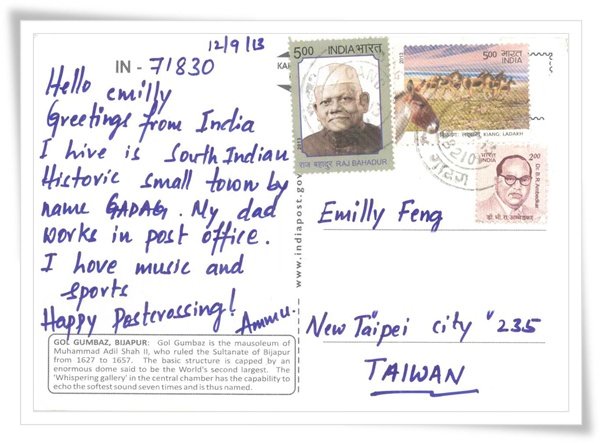 12/9/13
IN - 71830
Hello emilly
Greetings from India
I hive is South Indian
Historic small town by
name GADAG. My dad
works in post office.
I hove music and
sports
Happy Postcrossing!
Ammu.
GOL GUMBAZ, BIJAPUR: Gol Gumbaz is the mausoleum of
Muhammad Adil Shah II, who ruled the Sultanate of Bijapur
from 1627 to 1657. The basic structure is capped by an
enormous dome said to be the World's second largest. The
'Whispering gallery' in the central chamber has the capability to
echo the softest sound seven times and is thus named.
www.indiapost.gov
5.00 INDIA भारत
राज बहादुर RAJ BAHADUR
2013
5.00 भारत
INDIA
KIANG, LADAKH
भारत INDIA 2.00
Dr. B.R. Ambedkar
डॉ. भी. रा. अम्बेडकर
Emilly Feng
New Taipei city "235
TAIWAN